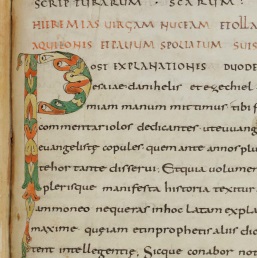 SCRIPTURARUM · SCARUM :
HIEREMIAS UIRGAM NUCEAM ET OLLA
AQUILONIS ET PAUUM SPOLIATUM SUIS
POST EXPLANATIONES DUODE
esaiae danihelis et ezechiel
miam manum mittimus tibi f
commentariolos dedicantes ut euuang
euangelistę copules quem ante annos plu
te hortante disserui. Et quia uolumen
plerisque manifesta historia texitur
ammoneo ne queras in hoc latam expla
maxime quę iam et in prophetis aliis dic
tent intellegentię. Sicque conabor not